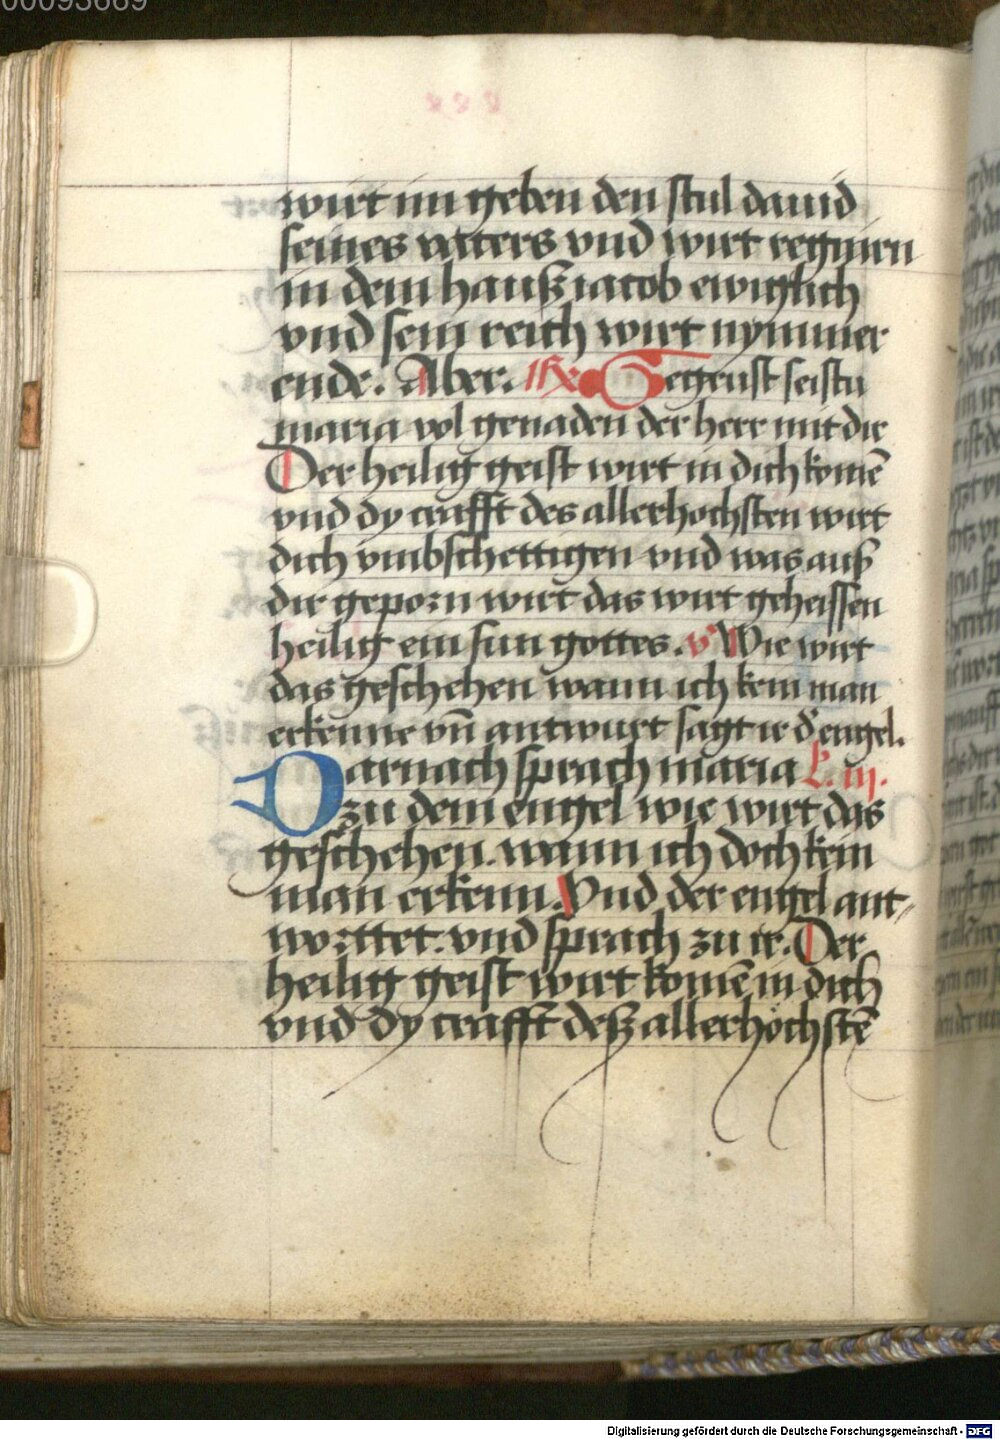 00093669
wirt im geben den stul dauid
seines vatters vnd wirt regnirn
in dem hauß iacob ewiglich
vnd sein reich wirt nymmer
ende. Aber. Gegrust seistu
maria vol genaden der herr mit dir
Der heilig geist wirt in dich komē
vnd dy crafft des allerhochsten wirt
dich vmbschettigen vnd was auß
dir geporn wirt das wirt geheissen
heilig ein sun gottes. v̄ Wie wirt
das geschehen wann ich kein man
erkenne vn̄ antwurt sagt ir d̕ engel.
Darnach sprach maria L. iij.
zu dem engel wie wirt das
geschehen. wann ich doch kein
man erkenn. Vnd der engel ant-
worttet. vnd sprach zu ir. Der
heilig geist wirt komē in dich
vnd dy crafft deß allerhochstē
Digitalisierung gefördert durch die Deutsche Forschungsgemeinschaft - DFG